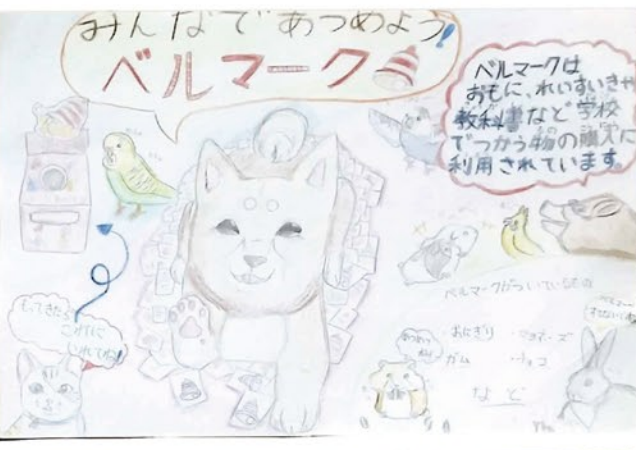 みんなであつめよう!
ベルマーク
ベルマークは
おもに、れいすいきや
教科書など学校
でつかう物の購入に
利用されています。
もってきたら
これに
いれてね!
ベルマークがついているもの
・おにぎり ・マヨネーズ
・ガム ・チョコ
など